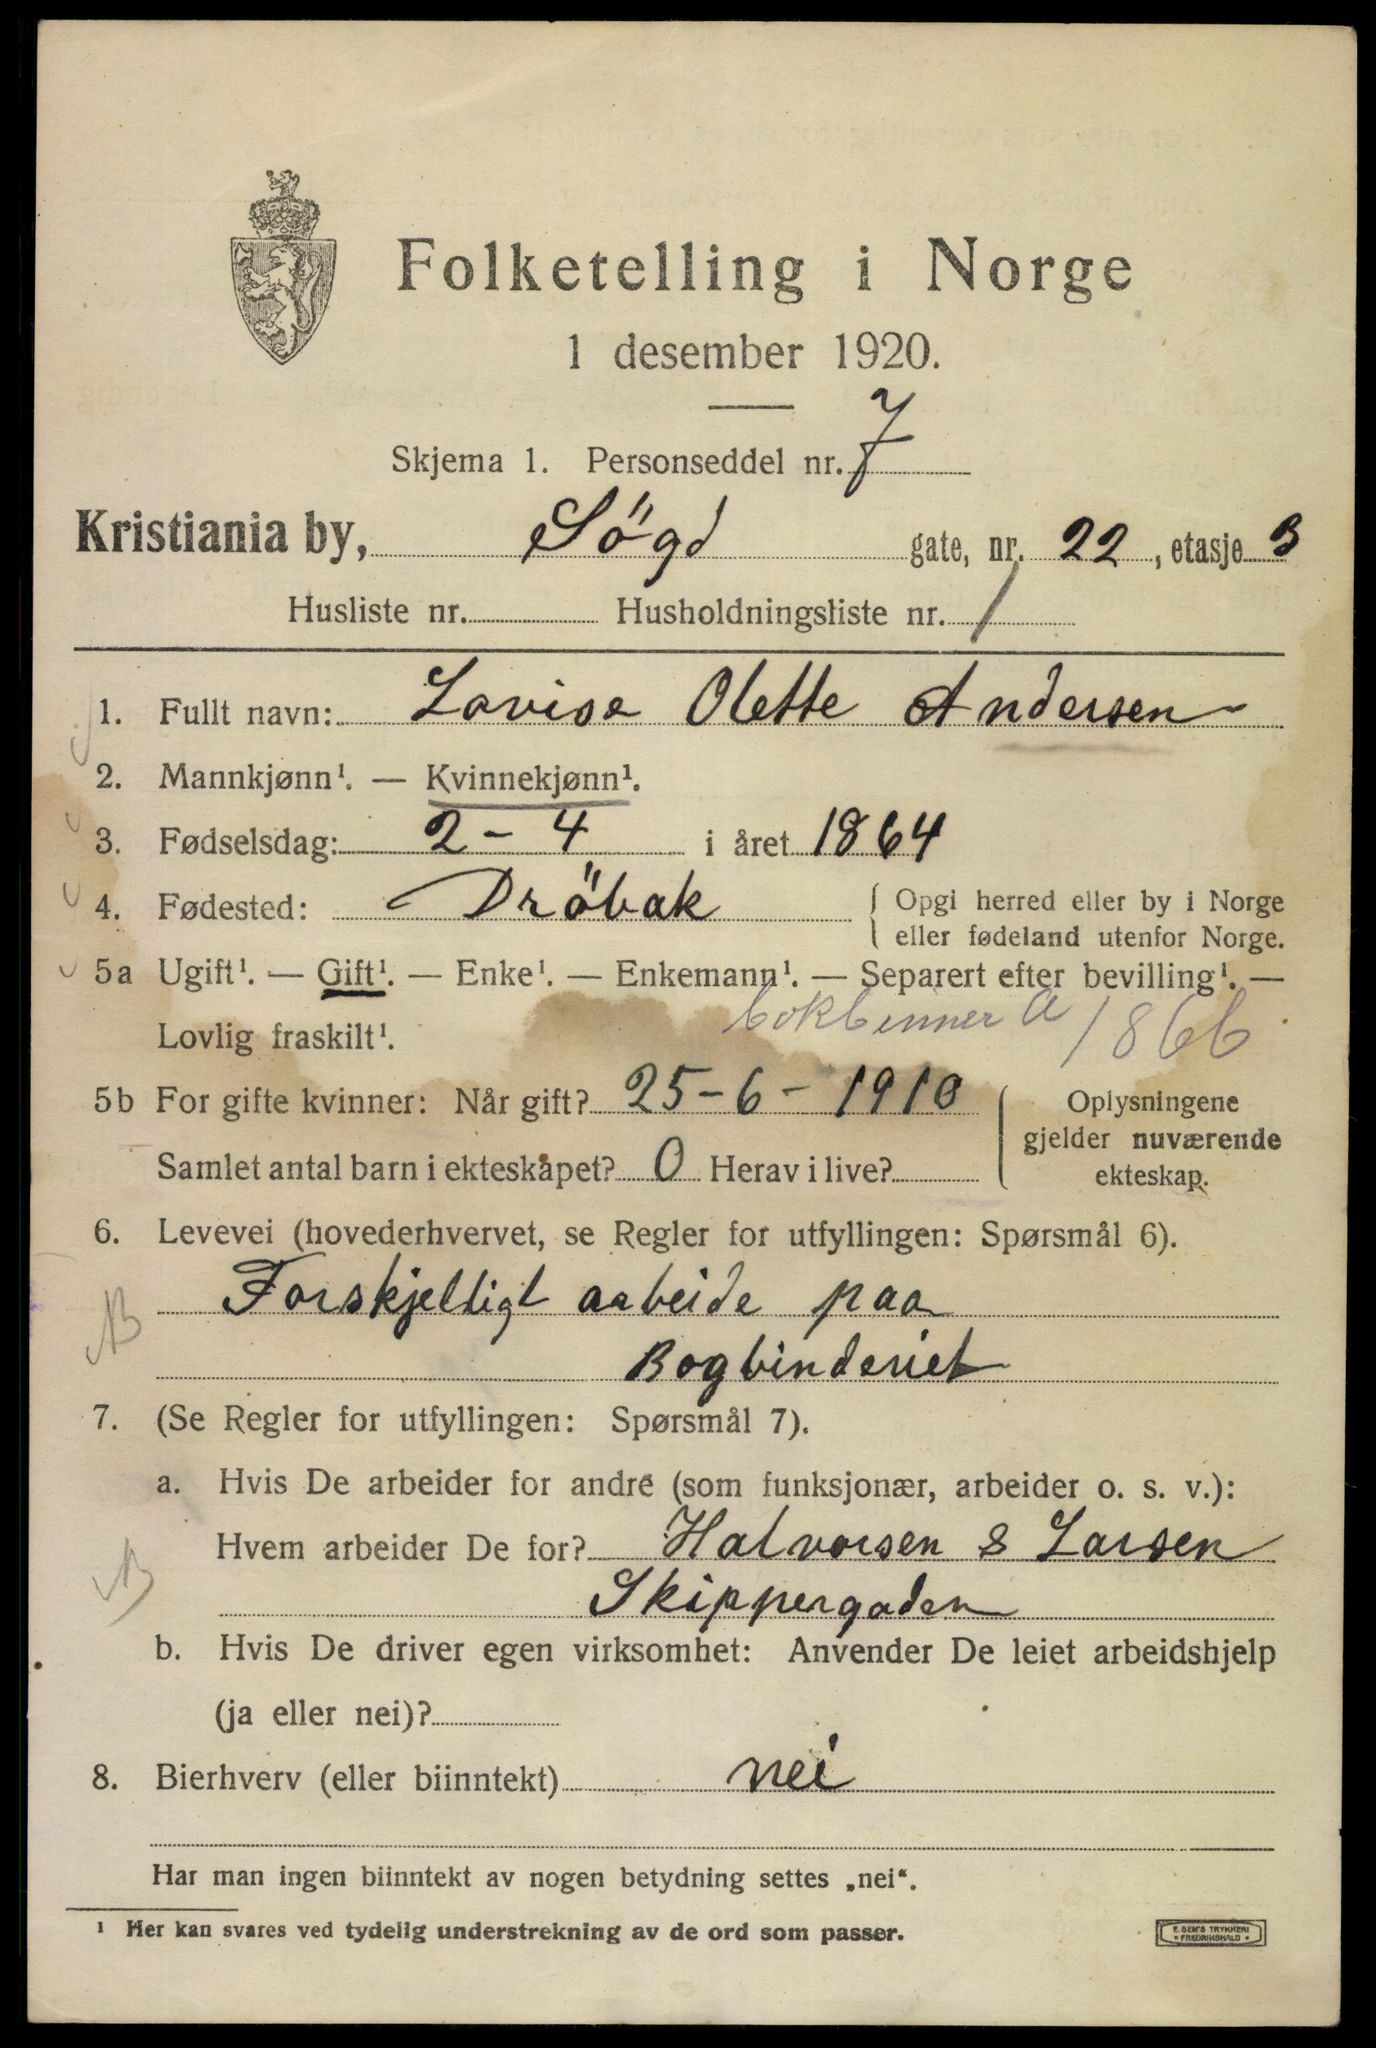 Folketelling i Norge
1 desember 1920.
Skjema 1. Personseddel nr. 7
Kristiania by, Sögd gate, nr. 22, etasje 3
Husliste nr. Husholdningsliste nr. 1
1. Fullt navn: Lovise Olette Andersen
2. Mannkjønn¹. — Kvinnekjønn¹.
3. Fødselsdag: 2-4 i året 1864
4. Fødested: Dröbak { Opgi herred eller by i Norge
eller fødeland utenfor Norge.
5a Ugift¹. — Gift¹. — Enke¹. — Enkemann¹. — Separert efter bevilling¹. —
Lovlig fraskilt¹. bokbinner a 1866
5b For gifte kvinner: Når gift? 25-6-1910
Samlet antal barn i ekteskapet? 0 Herav i live?
{ Oplysningene
gjelder nuværende
ekteskap.
6. Levevei (hovederhvervet, se Regler for utfyllingen: Spørsmål 6).
Forskjelligt aabeide paa
Bogbinderiet
7. (Se Regler for utfyllingen: Spørsmål 7).
a. Hvis De arbeider for andre (som funksjonær, arbeider o. s. v.):
Hvem arbeider De for? Halvorsen & Larsen
Skippergaden
b. Hvis De driver egen virksomhet: Anvender De leiet arbeidshjelp
(ja eller nei)?
8. Bierhverv (eller biinntekt) nei
Har man ingen biinntekt av nogen betydning settes „nei“.
¹ Her kan svares ved tydelig understrekning av de ord som passer.
E. SEM'S TRYKKERI
• FREDRIKSHALD •